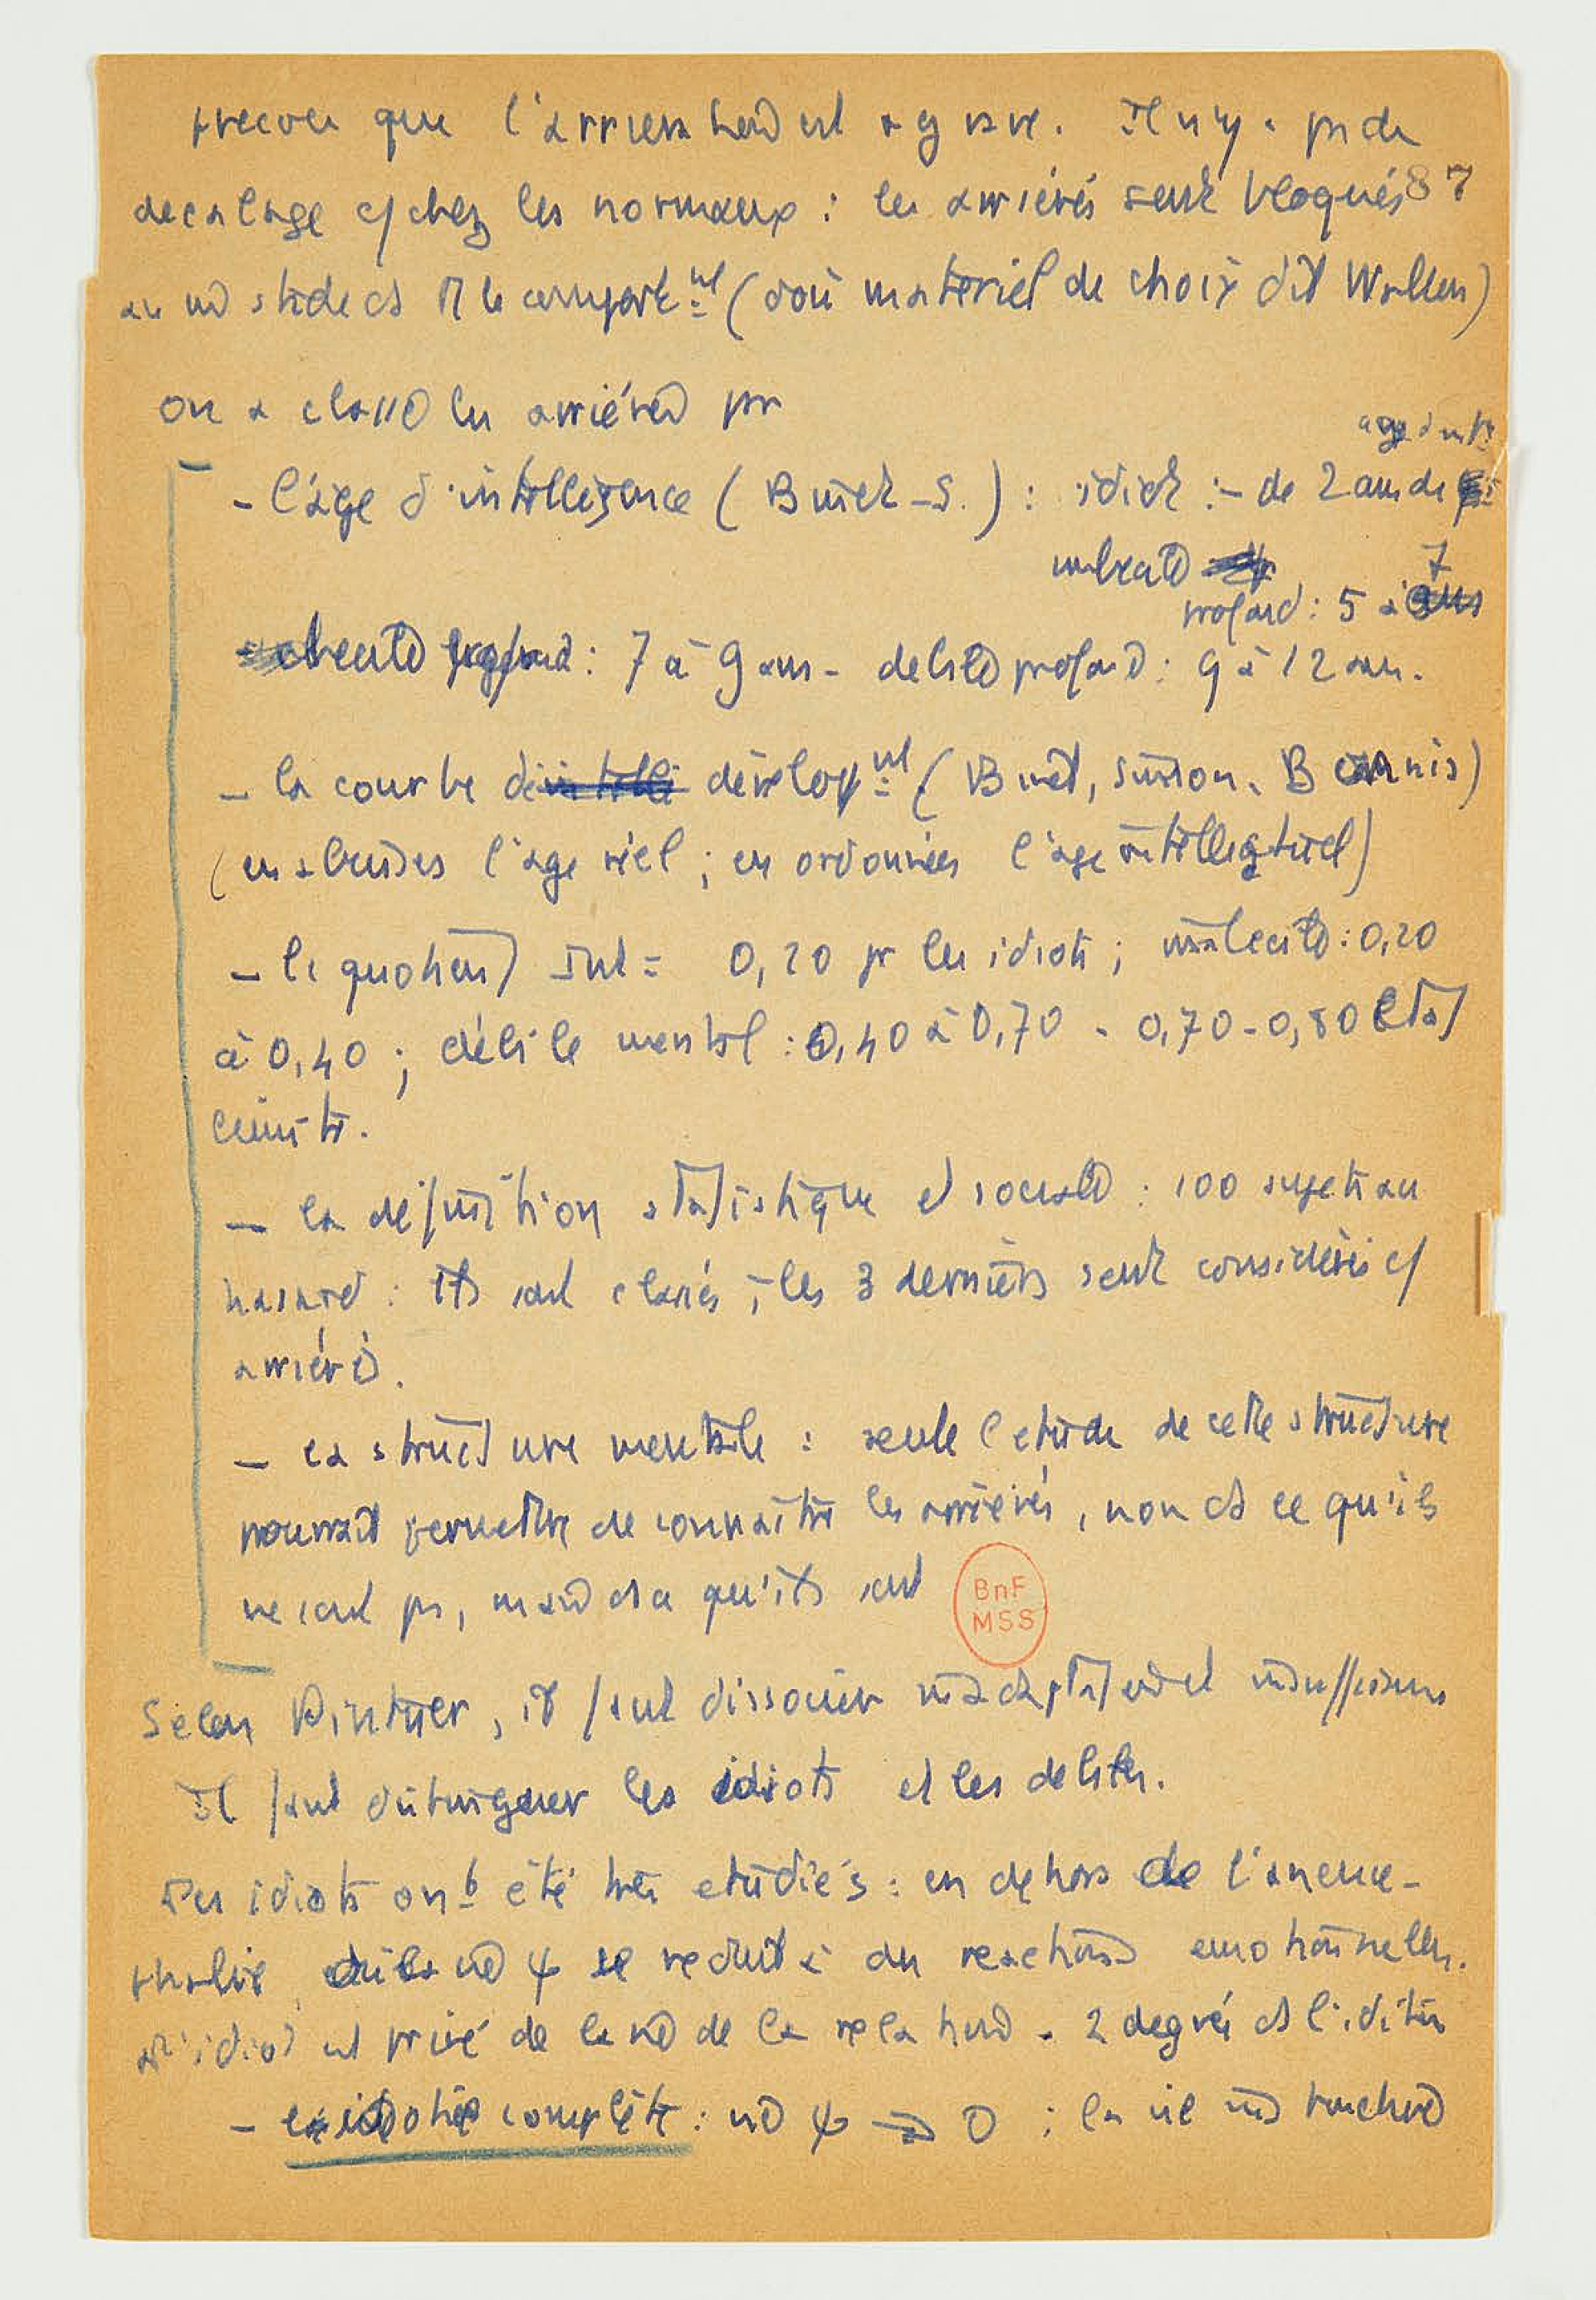 que l'arrieration est grave. Il n'y a pas de
decalage c/ chez les normaux : les arriérés sont bloqués 87
au stade ds le comport^nt (d'où matériel de choix dit Wallon)
on a classé les arriérés par
- l'âge d'intelligence (Binet-S.) : idiot : - de 2 ans de
7
profond : 5 à
profond : 7 à 9 ans - debile profond : 9 à 12 ans.
- la courbe de develop^nt (Binet, Simon, B )
(en abcisses l'age réel ; en ordonnées l'age intellectuel)
- le quotient Int = 0,20 pr les idiots ; imbecile : 0,20
à 0,40 ; débile mental : 0,40 à 0,70 - 0,70-0,80 état
limite.
- la définition statistique et sociale : 100 sujets au
hasard : ils sont classés ; les 3 derniers sont considérés c/
arriérés.
- la structure mentale : seule l'etude de cette structure
pourrait permettre de connaître les arriérés, non ds ce qu'ils
ne sont pas, mais ds ce qu'ils sont
BnF
MSS
Selon Pintner, il faut dissocier inadaptation et insuffisance
Il faut distinguer les idiots et les debiles.
Les idiots ont été très etudiés : en dehors de l'anence-
phalie, ψ se reduit à des reactions emotionnelles.
l'idiot est privé de la vie de la relation - 2 degrés ds l'idiotie
- idiotie complète : vie ψ => 0 ; la vie